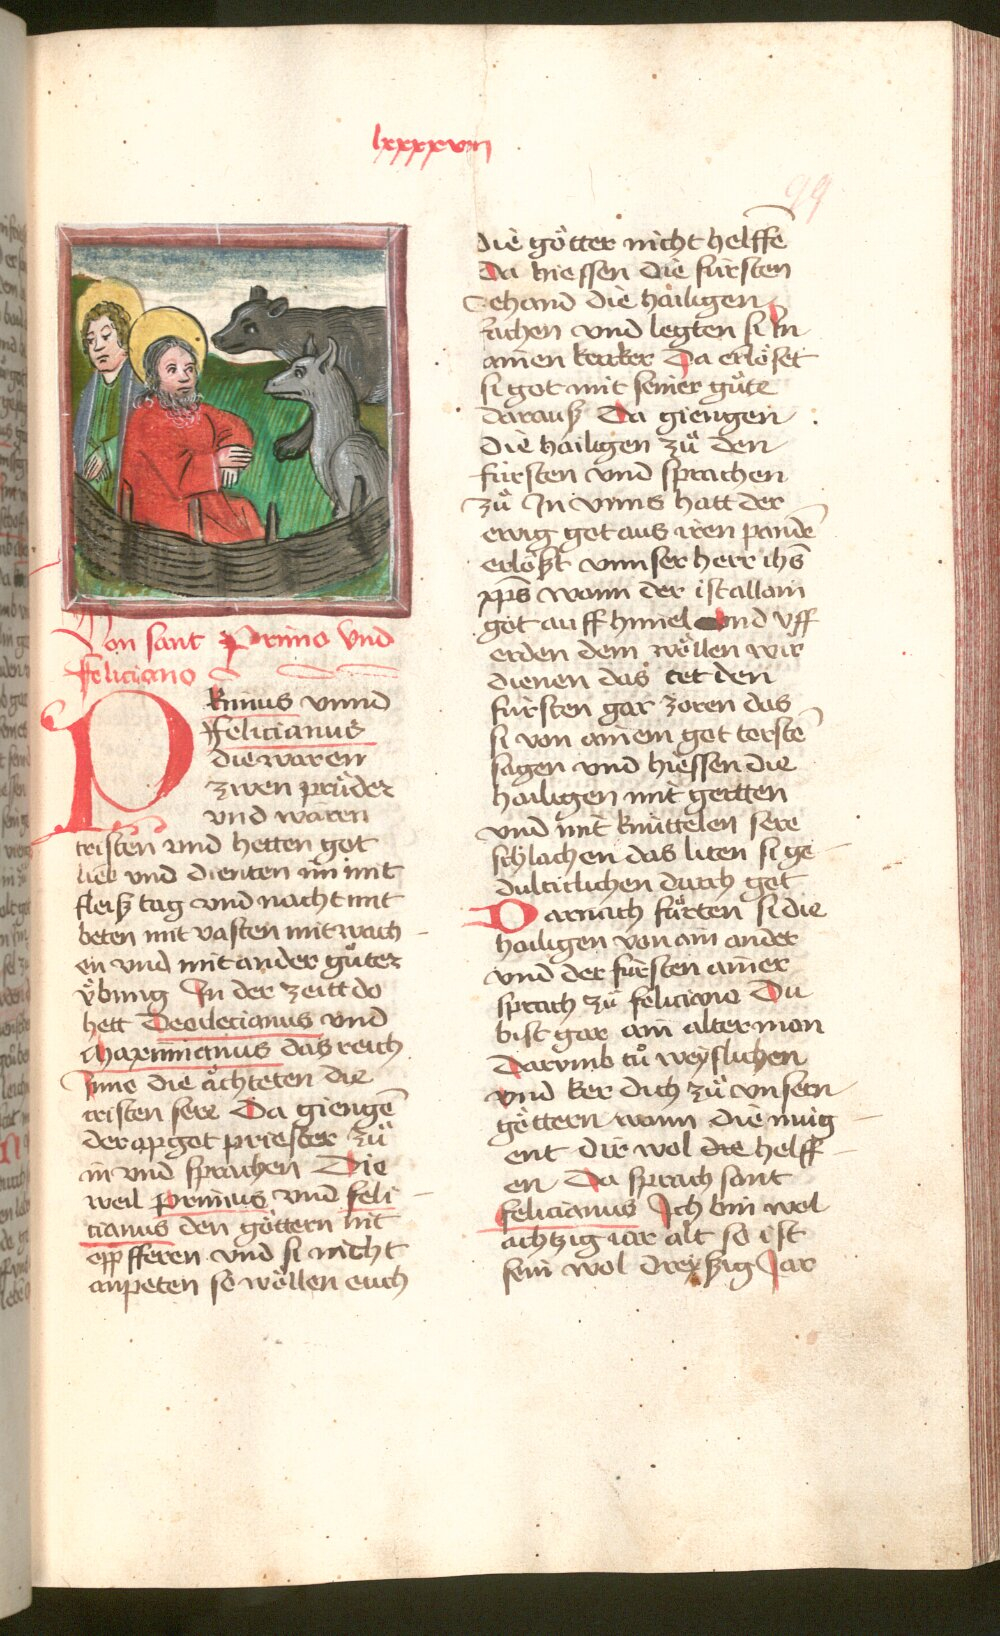 lxxxxviii
99
Von sant Primo vnd
Feliciano
PRimus vnnd
Felicianus
die waren
zwen prüder
vnd waren
cristen vnd hetten got
lieb vnd dienten im mit
fleiß tag vnd nacht mit
beten mit vasten mit wach
en vnd mit ander gůter
v̈bung In der zeitt do
hett Deodecianus vnd
Maximianus das reich
Inne die ächteten die
cristen sere Da giengē
der apgot priester zů
in vnd sprachen Die
weil Primus vnd feli
cianus den göttern nit
opfferen vnd si nicht
anpeten so wöllen euch
die götter nicht helffē
Da hiessen die fürsten
zehand die hailigen
fachen vnd legten si In
ainen kerker Da erlöset
si got mit seiner gůte
darauß Da giengen
die hailigen zů den
fürsten vnd sprachen
zů In vnns hatt der
ewig got aus iren pandē
erlößt vnnser herr ihs̄
xp̄s wann der ist allain
got auff himel vnd vff
erden dem wöllen wir
dienen das tet den
fürsten gar zoren das
si von ainem got torstē
sagen vnd hiessen die
hailigen mit gertten
vnd mit knüttelen sere
schlachen das liten si ge
dulticlichen durch got
Darnach fůrten si die
hailigen von ain ander
vnd der fürsten ainer
sprach zů feliciano Du
bist gar ain alter man
Darvmb tů weyslichen
vnd ker dich zů vnsern
göttern wann die mug
ent dir wol die helff
en Da sprach sant
felicianus Ich bin wol
achtzig iar alt so ist
sein wol dreyßig Jar